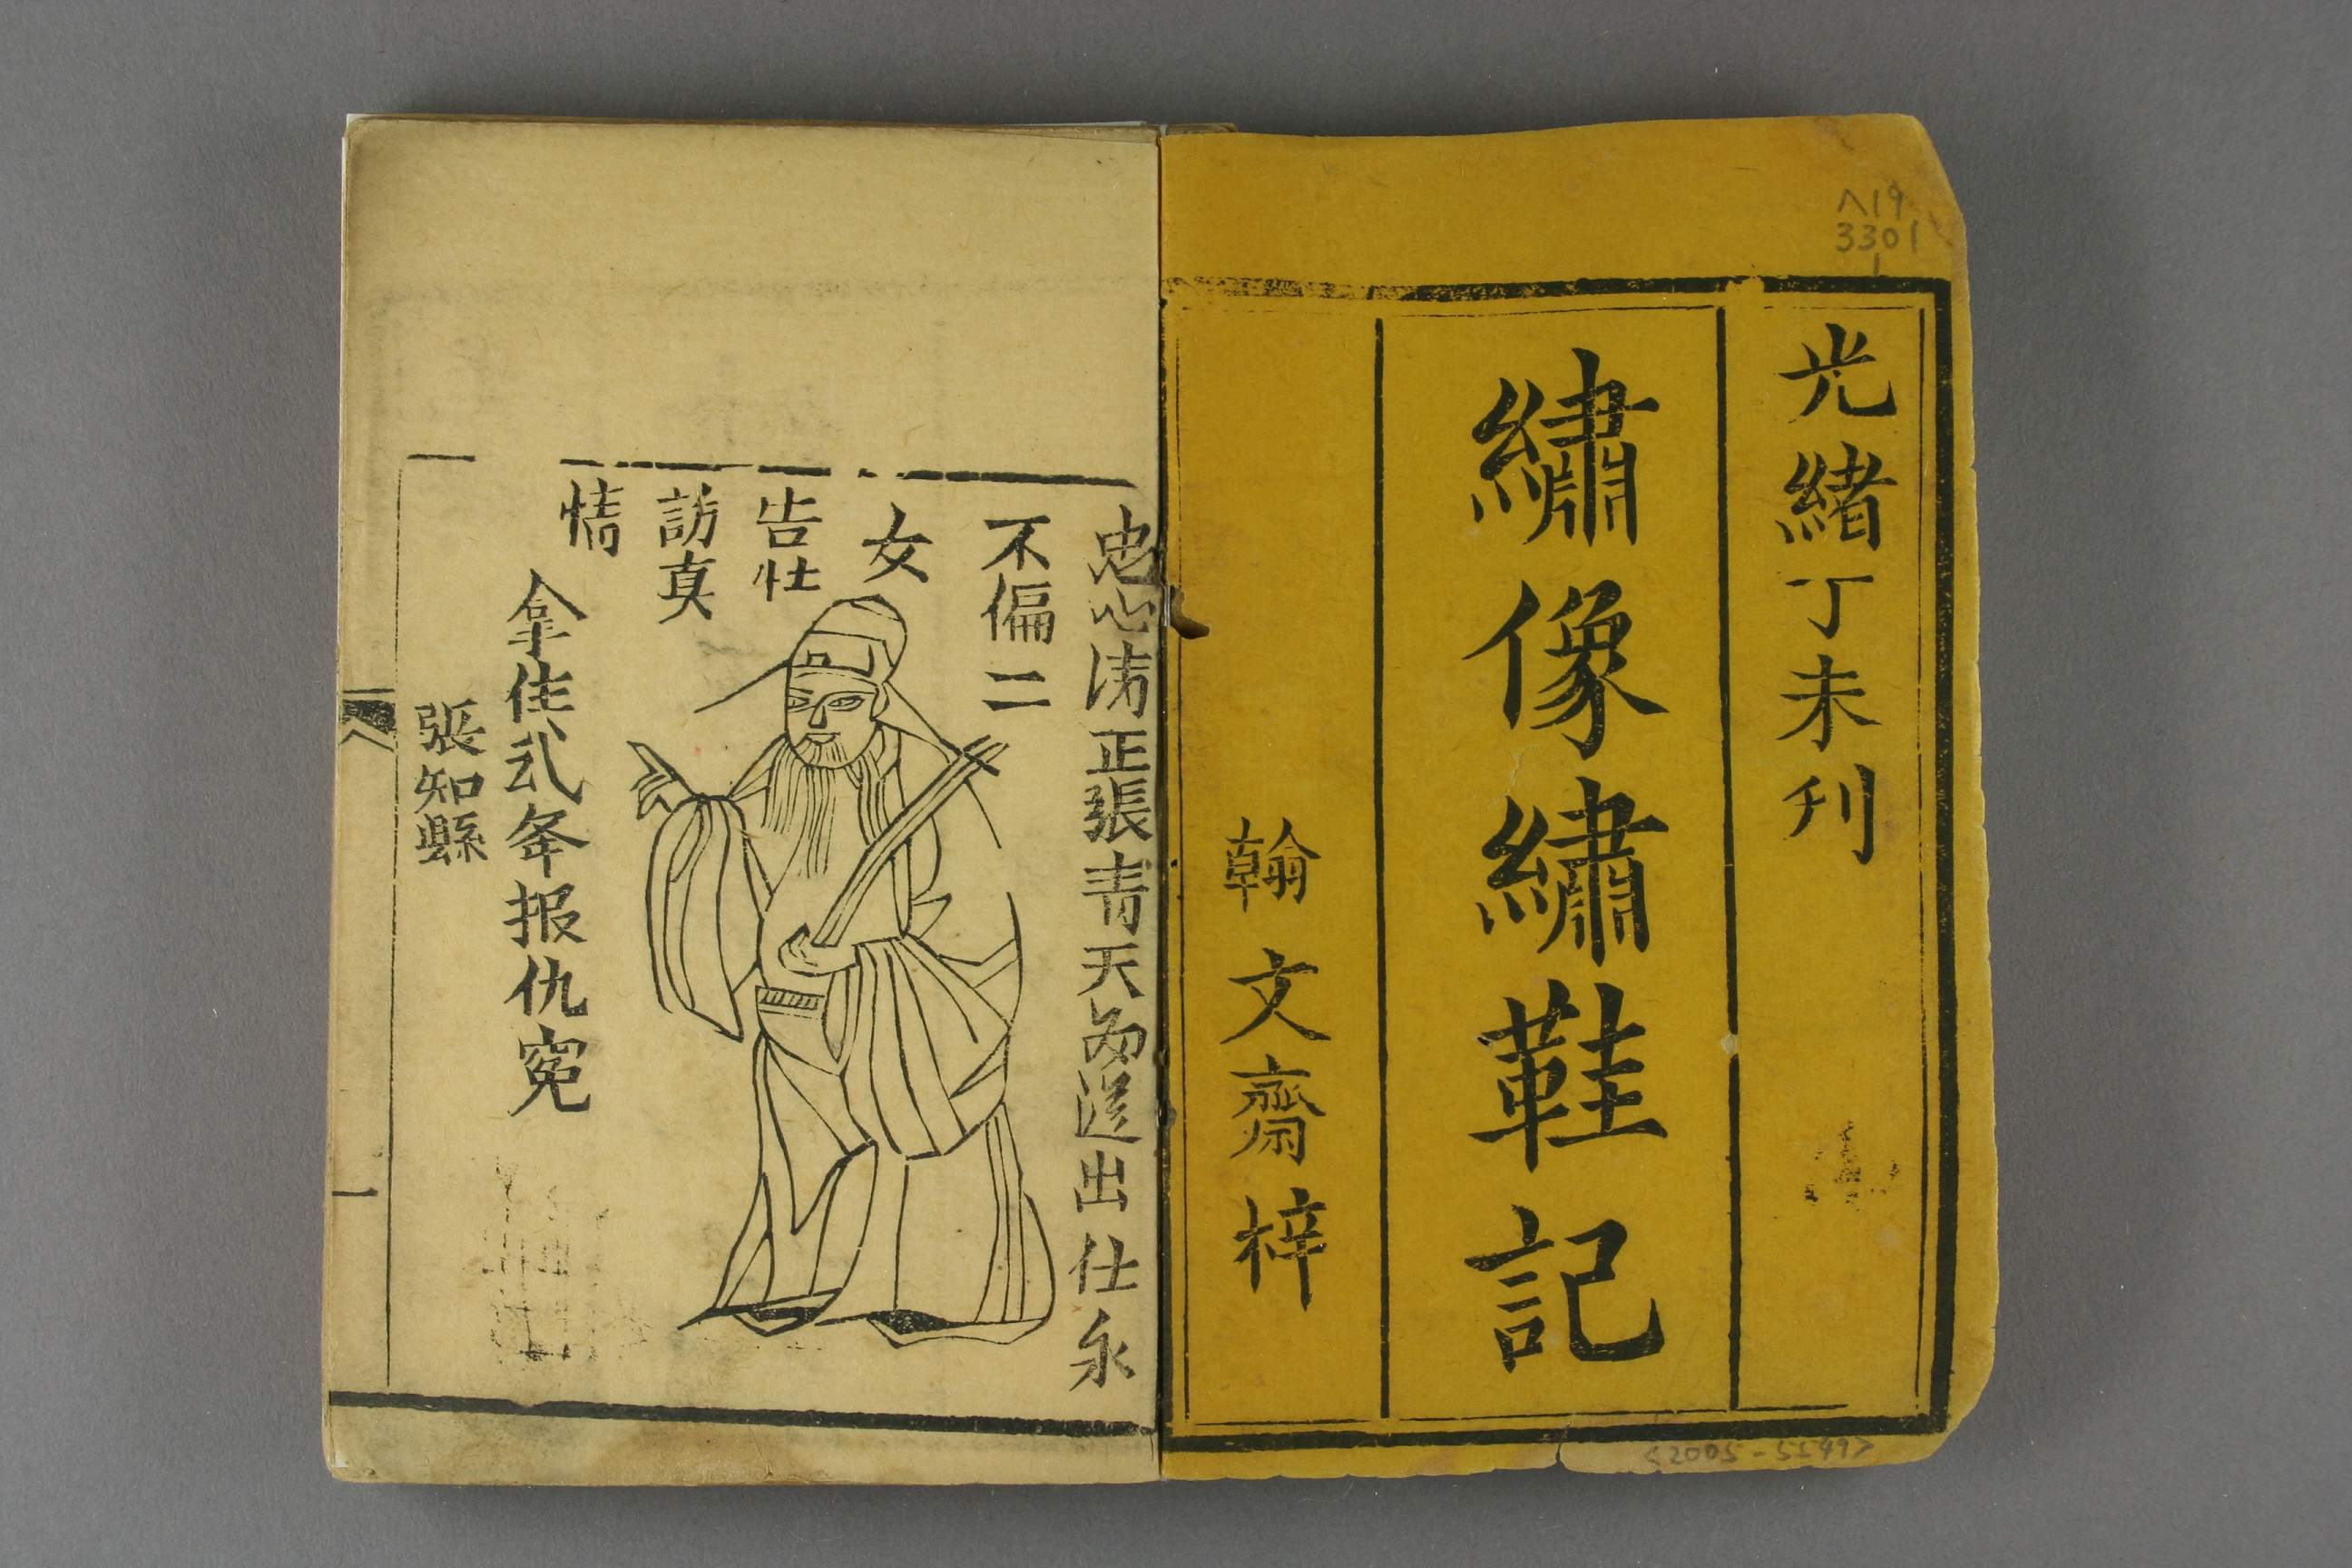 光緒丁未刊
繡像繡鞋記
翰文齋梓
忠心清正張青天 出仕永
不偏二
女
告壮
訪真
情
拿住弍年报仇寃
張知縣
一
3301
1
<2005-5549>